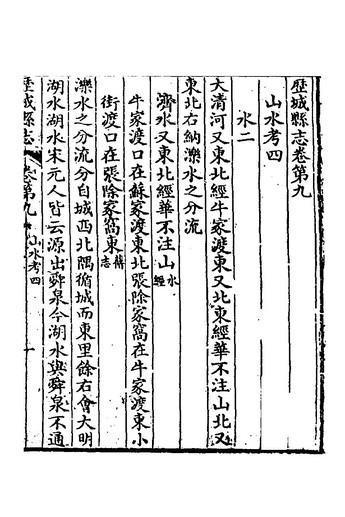 歷城縣志卷第九
山水考四
水二
大清河又東北經牛家渡東又北東經華不注山北又
東北右納濼水之分流
濟水又東北經華不注山水經
牛家渡口在蘇家渡東北張除家窩在牛家渡東小
街渡口在張除家窩東舊志
濼水之分流分自城西北隅循城而東里餘右會大明
湖水湖水宋元人皆云源出舜泉今湖水與舜泉不通
歷城縣志 卷第九 山水考四 一